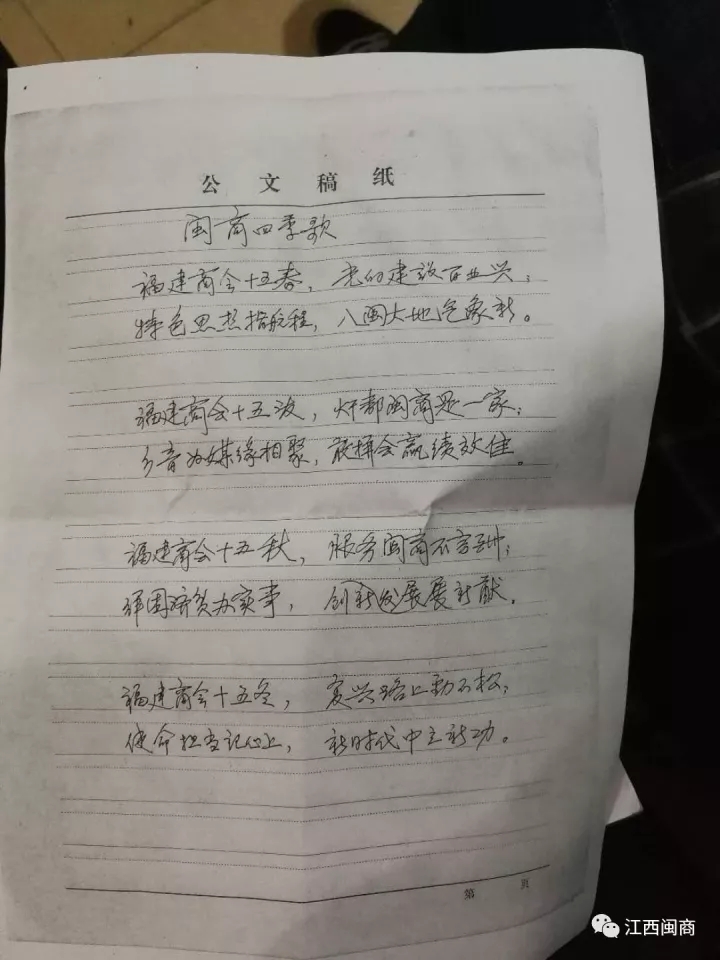 公文稿纸
闽商四季歌
福建商会十五春，党的建设百业兴；
特色思想指航程，八闽大地气象新。
福建商会十五波，怀都闽商是一家；
乡音为媒缘相聚，放择会赢绩效佳。
福建商会十五秋，服务闽商不言酬；
解困济贫办实事，创新发展展新献。
福建商会十五冬，复兴路上勤不松；
使命担当记心上，新时代中立新功。
第 页
江西闽商